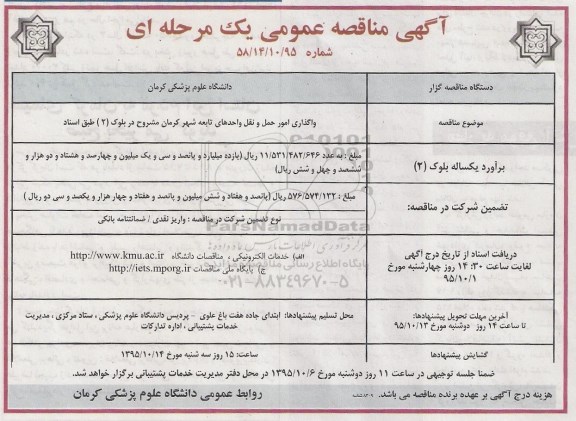 آگهی مناقصه عمومی یک مرحله ای
شماره ۵۸/۱۴/۱۰/۹۵
دستگاه مناقصه گزار
دانشگاه علوم پزشکی کرمان
موضوع مناقصه
واگذاری امور حمل و نقل واحدهای تابعه شهر کرمان مشروح در بلوک (۲) طبق اسناد
برآورد یکساله بلوک (۲)
مبلغ : به عدد ۱۱/۵۳۱/۴۸۲/۶۴۶ ریال (یازده میلیارد و پانصد و سی و یک میلیون و چهارصد و هشتاد و دو هزار و
ششصد و چهل و شش ریال)
تضمین شرکت در مناقصه:
مبلغ : ۵۷۶/۵۷۴/۱۳۲ ریال (پانصد و هفتاد و شش میلیون و پانصد و هفتاد و چهار هزار و یکصد و سی دو ریال )
نوع تضمین شرکت در مناقصه : واریز نقدی / ضمانتنامه بانکی
دریافت اسناد از تاریخ درج آگهی
لغایت ساعت ۱۴:۳۰ روز چهارشنبه مورخ
۹۵/۱۰/۱
الف) خدمات الکترونیکی ، مناقصات دانشگاه http://www.kmu.ac.ir
ج) پایگاه ملی مناقصات http://iets.mporg.ir
آخرین مهلت تحویل پیشنهادها:
تا ساعت ۱۴ روز دوشنبه مورخ ۹۵/۱۰/۱۳
محل تسلیم پیشنهادها: ابتدای جاده هفت باغ علوی - پردیس دانشگاه علوم پزشکی ، ستاد مرکزی ، مدیریت
خدمات پشتیبانی ، اداره تدارکات
گشایش پیشنهادها
ساعت: ۱۵ روز سه شنبه مورخ ۱۳۹۵/۱۰/۱۴
ضمنا جلسه توجیهی در ساعت ۱۱ روز دوشنبه مورخ ۱۳۹۵/۱۰/۶ در محل دفتر مدیریت خدمات پشتیبانی برگزار خواهد شد.
هزینه درج آگهی بر عهده برنده مناقصه می باشد.
روابط عمومی دانشگاه علوم پزشکی کرمان
ParsNamadData
پایگاه اطلاع رسانی مناقصات
۰۲۱-۸۸۳۴۹۶۷۰-۵